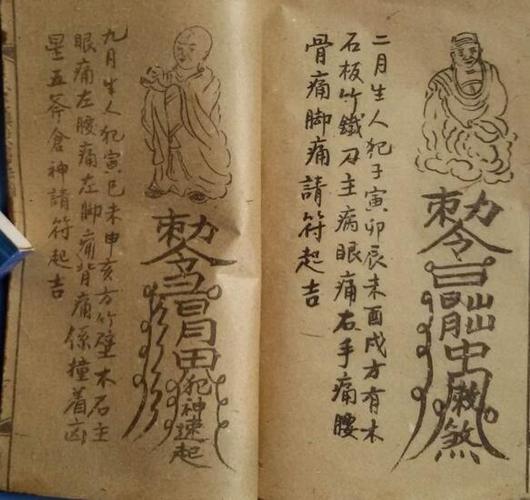 二月生人犯子寅卯辰未酉戌方有木
石板竹鐵刀主病眼痛右手痛腰
骨痛脚痛請符起吉
敕令
煞
九月生人犯寅巳未申亥方竹壁木石主
眼痛左腰痛左脚痛背痛係撞着凶
星五斧倉神請符起吉
敕令
犯神速起